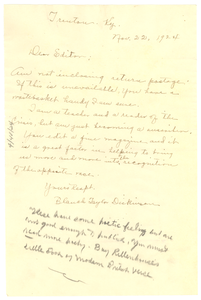 Trenton Ky.
Nov. 22, 1924
Dear Editor:
Am not inclosing return postage.
If this is unavailable, You have an
wastebasket handy I am sure.
I am a teacher and a reader of The
Crisis, but am just becoming a subscriber.
You edit a fine magazine and it
is a great factor in helping to bring
us more and more into recognition
of the opposite race.
Yours respt.
Taylor Dickinson
These have some poetic feeling but are
not good enough to publish. You must
read more poetry - Buy Rittenhouse's
Little Book of Modern British Verse